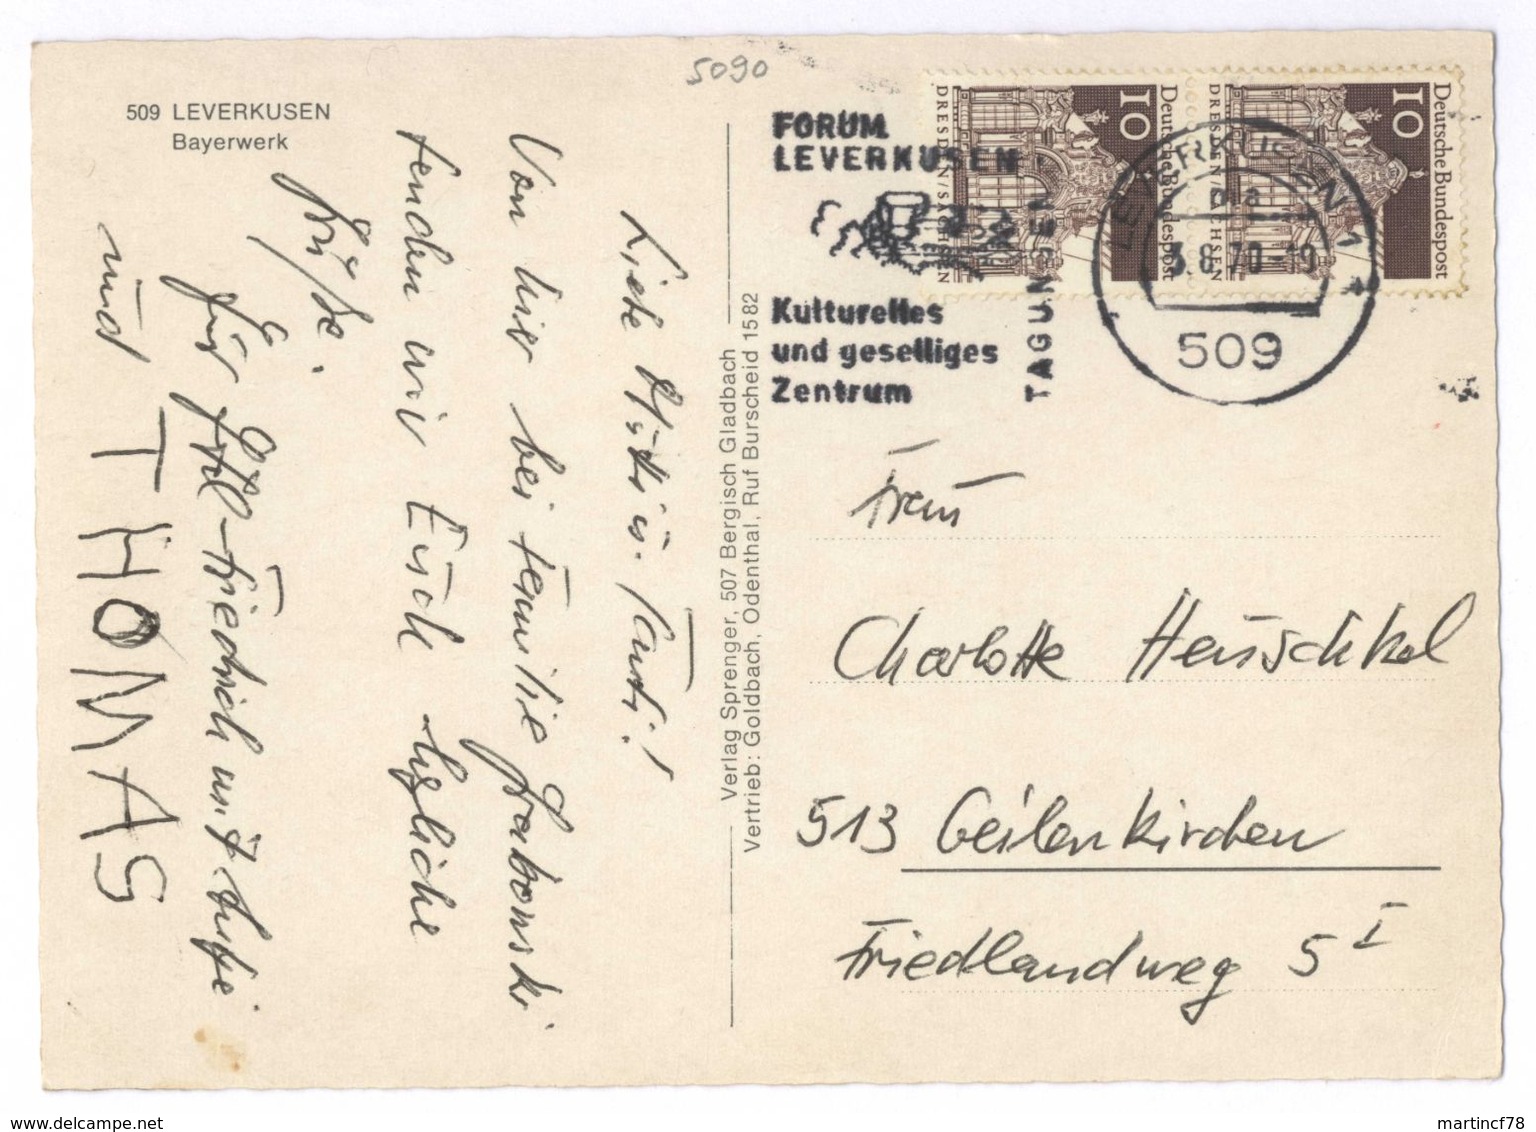 5090
509 LEVERKUSEN
Bayerwerk
Liebe Mutti u. Tanti!
Von hier bei Familie Grabowski
senden wir Euch herzliche
Grüße.
Friedrich mit
und THOMAS
Verlag Sprenger, 507 Bergisch Gladbach
Vertrieb: Goldbach, Odenthal, Ruf Burscheid 1582
FORUM
LEVERKUSEN
Kulturelles
und geselliges
Zentrum
TAGUNGEN
LEVERKUSEN 1
3.8.70-19
509
10
Deutsche Bundespost
DRESDEN/SACHSEN
10
Deutsche Bundespost
DRESDEN/SACHSEN
Frau
Charlotte Heuschkel
513 Geilenkirchen
Friedlandweg 5 I
www.delcampe.net
martincf78